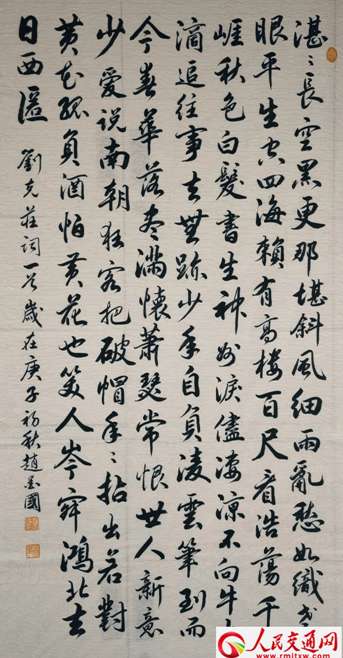 湛〻長空黑更那堪斜風細雨亂愁如織老
眼平生空四海賴有高樓百尺看浩蕩千
崖秋色白髮書生神州淚儘淒涼不向牛山
滴追往事去無跡少年自負凌雲筆到而
今春華落盡滿懷蕭瑟常恨世人新意
少愛說南朝狂客把破帽年〻拈出若對
黃花孤負酒怕黃花也笑人岑寂鴻北去
日西匿
劉克莊詞一首歲在庚子初秋趙國
人民交通网
www.rmjtxw.com